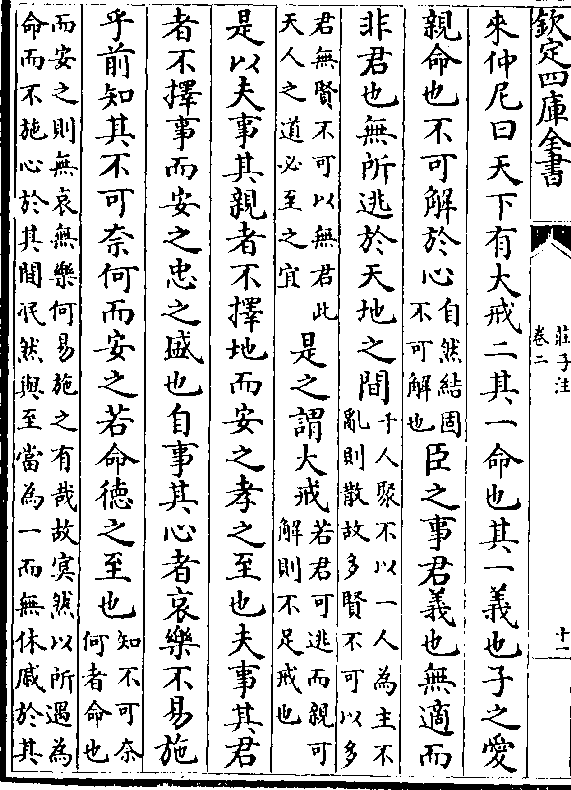 欽定四庫全書
莊子注
卷二
十一
來仲尼曰天下有大戒二其一命也其一義也子之愛
親命也不可解於心
自然結固
不可解也
臣之事君義也無適而
非君也無所逃於天地之間
千人聚不以一人為主不
亂則散故多賢不可以多
君無賢不可以無君此
天人之道必至之宜
是之謂大戒
若君可逃而親可
解則不足戒也
是以夫事其親者不擇地而安之孝之至也夫事其君
者不擇事而安之忠之盛也自事其心者哀樂不易施
乎前知其不可奈何而安之若命德之至也
知不可奈
何者命也
而安之則無哀無樂何易施之有哉故冥然以所遇為
命而不施心於其間泯然與至當為一而無休戚於其